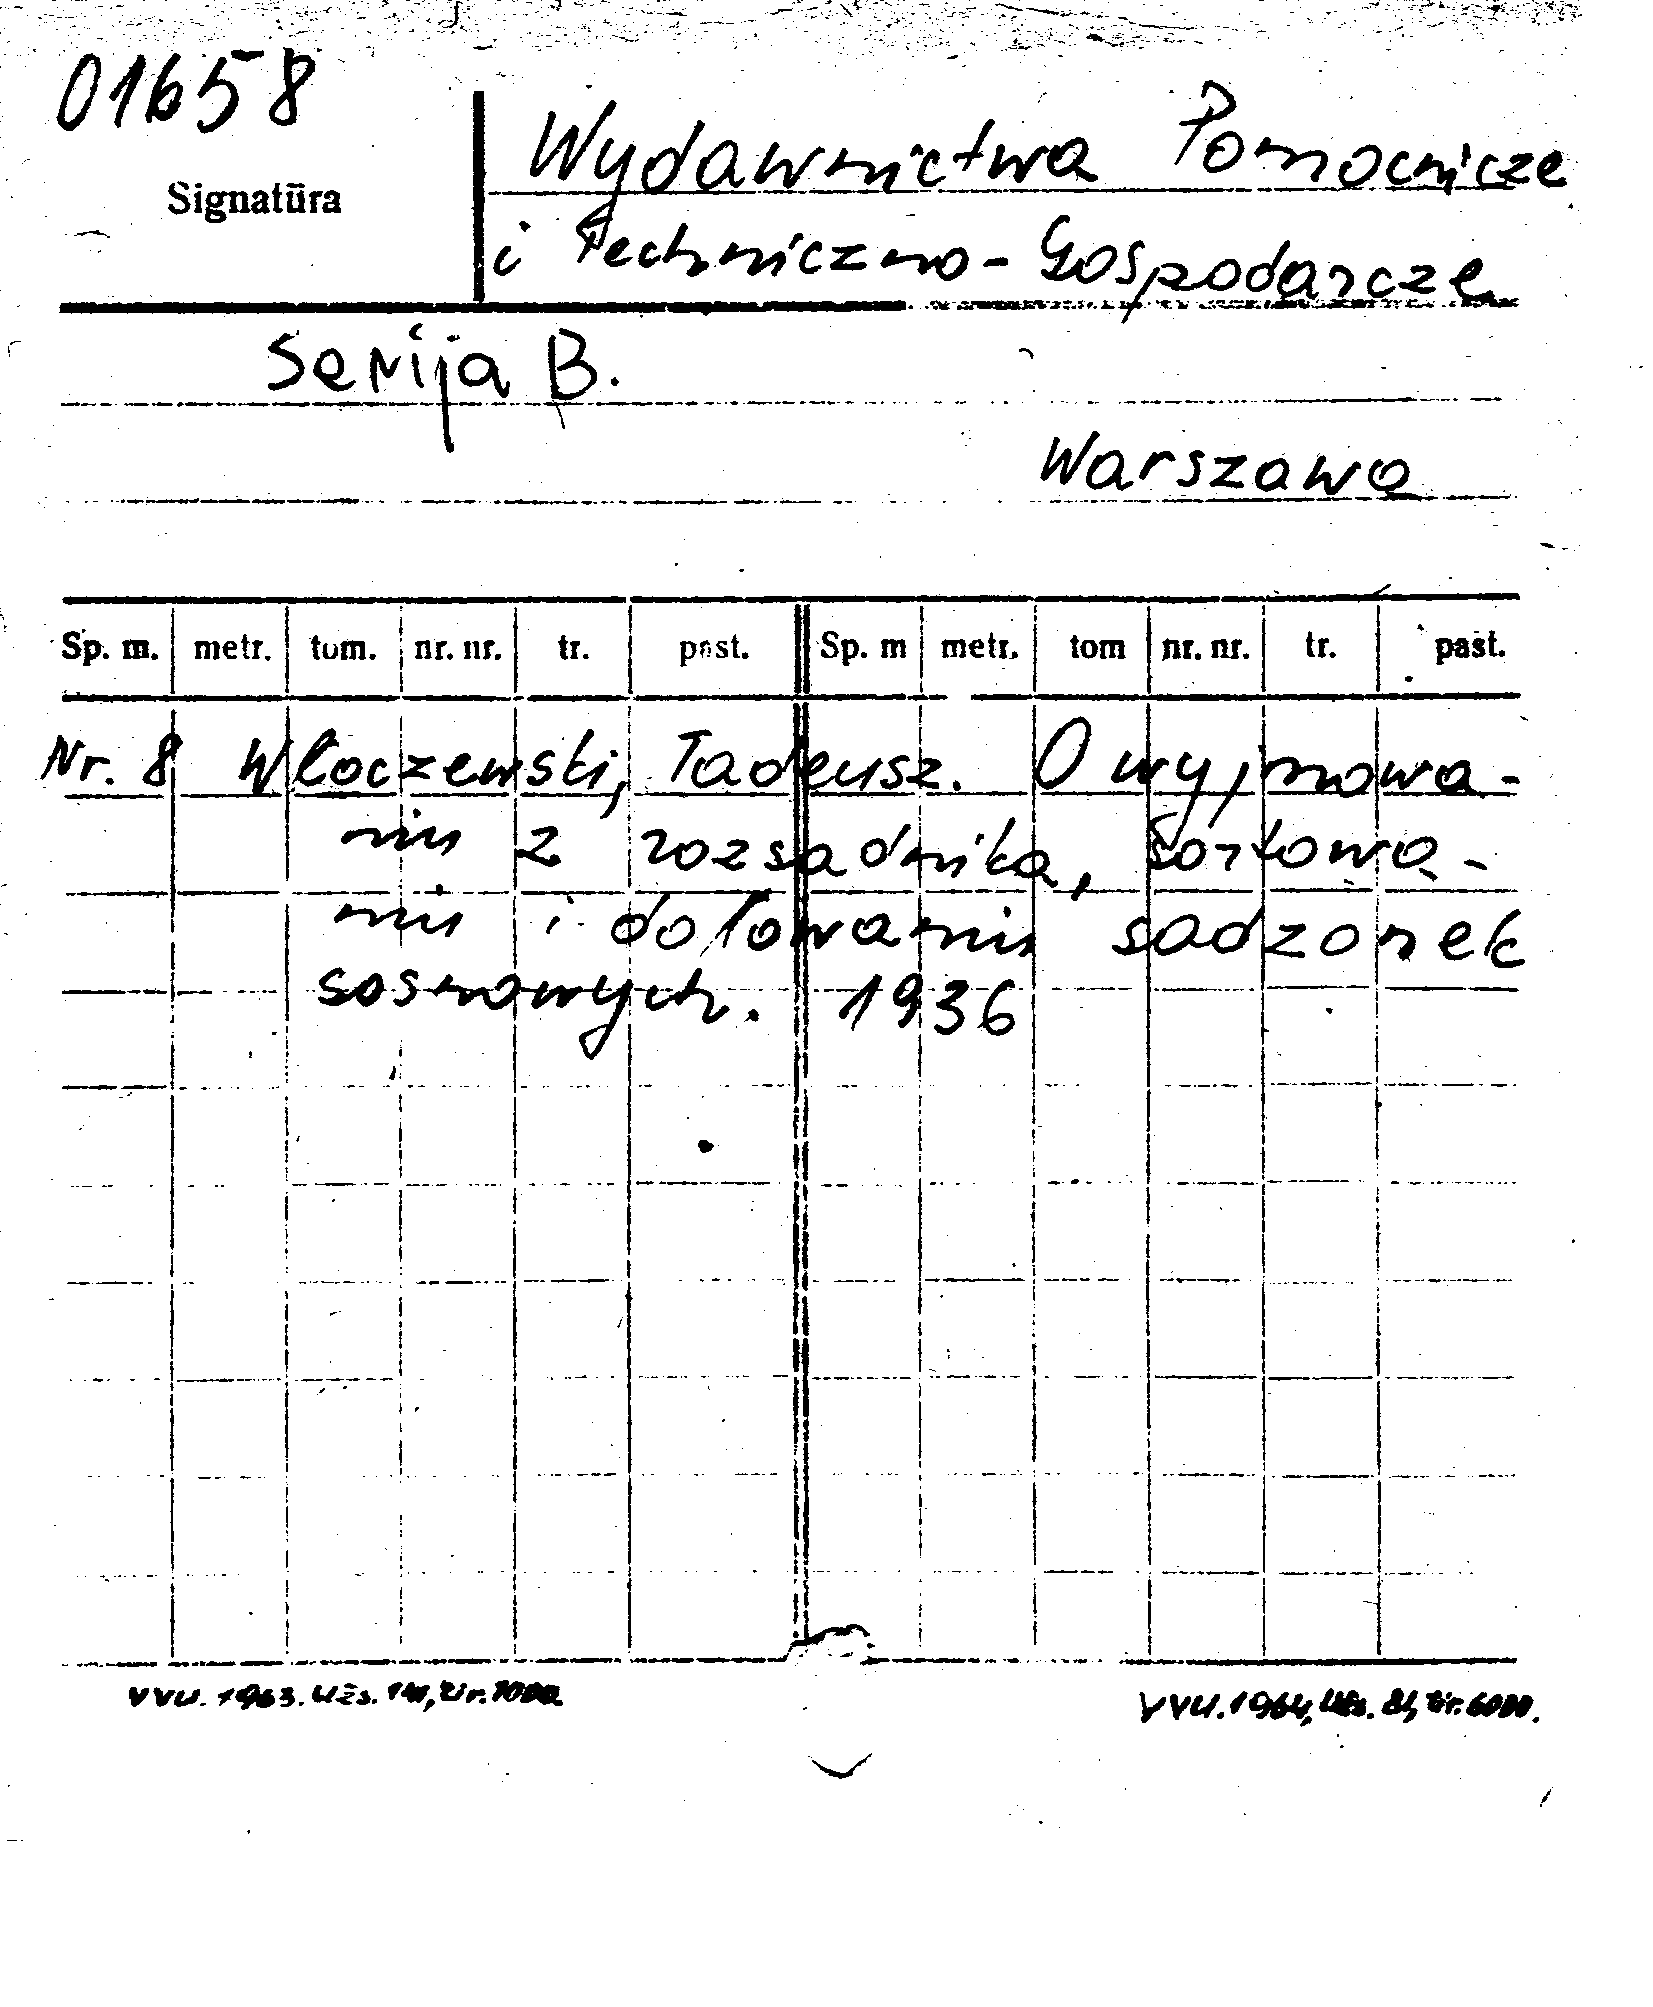 01658
Signatūra
Wydawnictwa Pomocnicze
i Techniczno-Gospodarcze
Serija B.
Warszawa
Sp. m. metr. tom. nr. nr. tr. past. Sp. m metr. tom nr. nr. tr. past.
Nr. 8 Włoczewski, Tadeusz. O wyjmowa-
niu z rozsadnika, sortowa-
niu i dołowaniu sadzonek
sosnowych. 1936
VVU. 1963. Užs. 141, tir. 7000
VVU. 1964, Užs. 81, tir. 6000.